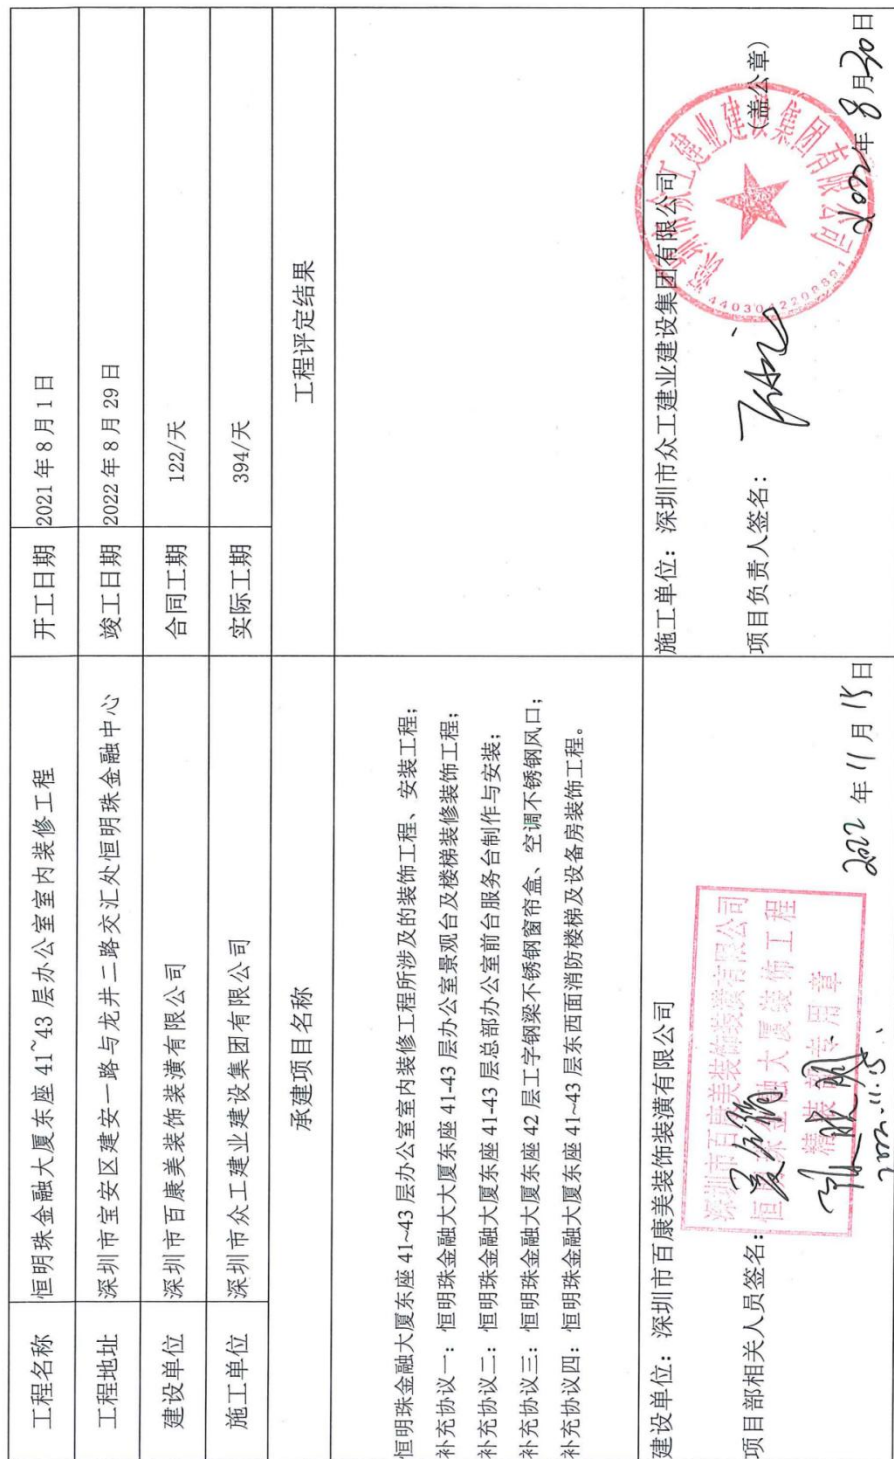 工程名称 恒明珠金融大厦东座 41~43 层办公室室内装修工程 开工日期 2021 年 8 月 1 日
工程地址 深圳市宝安区建安一路与龙井二路交汇处恒明珠金融中心 竣工日期 2022 年 8 月 29 日
建设单位 深圳市百康美装饰装潢有限公司 合同工期 122/天
施工单位 深圳市众工建业建设集团有限公司 实际工期 394/天
承建项目名称 工程评定结果
恒明珠金融大厦东座 41~43 层办公室室内装修工程所涉及的装饰工程、安装工程；
补充协议一：恒明珠金融大大厦东座 41-43 层办公室景观台及楼梯装修装饰工程；
补充协议二：恒明珠金融大厦东座 41-43 层总部办公室前台服务台制作与安装；
补充协议三：恒明珠金融大厦东座 42 层工字钢梁不锈钢窗帘盒、空调不锈钢风口；
补充协议四：恒明珠金融大厦东座 41~43 层东西面消防楼梯及设备房装饰工程。
建设单位：深圳市百康美装饰装潢有限公司
项目部相关人员签名：
深圳市百康美装饰装潢有限公司
恒明珠金融大厦装饰工程
精装部专用章
2022.11.15.
2022 年 11 月 15 日
施工单位：深圳市众工建业建设集团有限公司
项目负责人签名：
（盖公章）
深圳市众工建业建设集团有限公司
2022 年 8 月 30 日